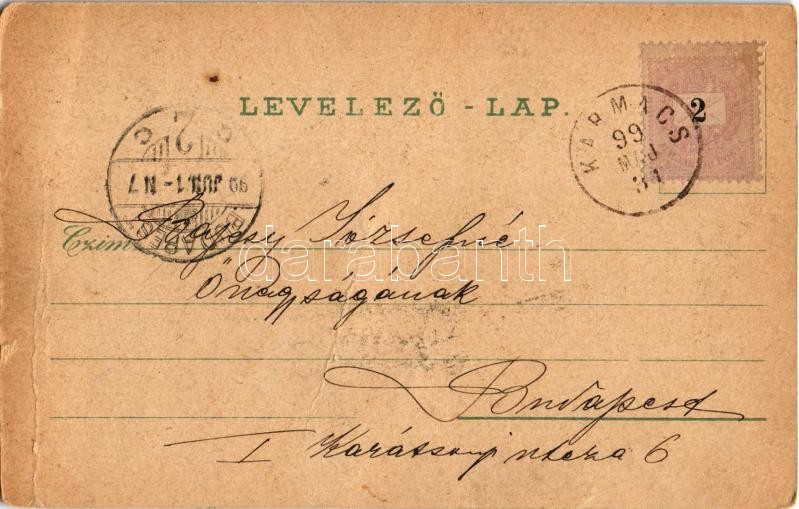 LEVELEZŐ - LAP.
2
KARMACS
99
MÁJ
31
BUDAPEST
99 JUN. 1 - N 7
2
Czim
Józsefné
Őnagyságának
Budapest
I Karátsonyi utcza 6
darabanth